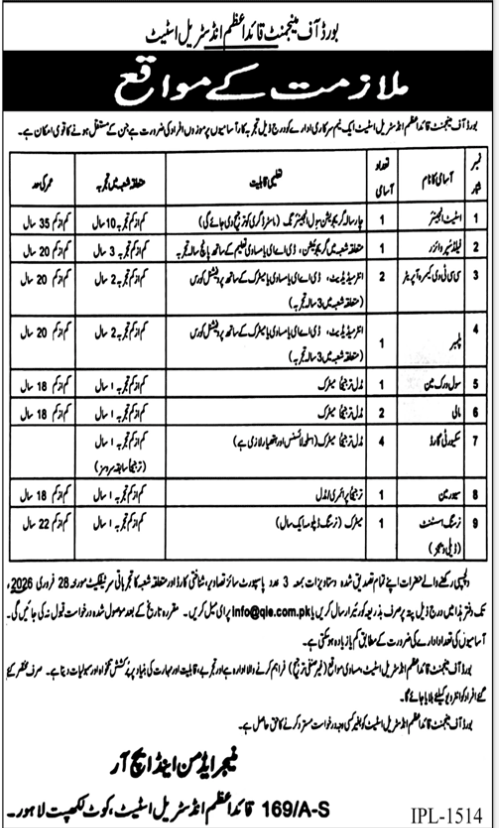 بورڈ آف مینجمنٹ قائداعظم انڈسٹریل اسٹیٹ
ملازمت کے مواقع
بورڈ آف مینجمنٹ قائداعظم انڈسٹریل اسٹیٹ ایک نیم سرکاری ادارے کو درج ذیل تجربہ کار آسامیوں پر موزوں افراد کی ضرورت ہے جن کے مستقل ہونے کا قوی امکان ہے۔
نمبر شمار | آسامی کا نام | تعداد آسامی | تعلیمی قابلیت | متعلقہ شعبہ میں تجربہ | عمر کی حد
1 | اسٹیٹ انجینئر | 1 | چار سالہ گریجویشن سول انجینئرنگ (ماسٹر ڈگری کو ترجیح دی جائے گی) | کم از کم تجربہ 10 سال | کم از کم 35 سال
2 | فیلڈ سپروائزر | 1 | متعلقہ شعبہ میں گریجویشن، ڈی اے ای یا مساوی تعلیم کے ساتھ پانچ سالہ تجربہ | کم از کم تجربہ 3 سال | کم از کم 20 سال
3 | سی سی ٹی وی کیمرہ آپریٹر | 2 | انٹرمیڈیٹ، ڈی اے ای یا مساوی یا میٹرک کے ساتھ پروفیشنل کورس (متعلقہ شعبہ میں 3 سالہ تجربہ) | کم از کم تجربہ 2 سال | کم از کم 20 سال
4 | پلمبر | 1 | انٹرمیڈیٹ، ڈی اے ای یا مساوی یا میٹرک کے ساتھ پروفیشنل کورس (متعلقہ شعبہ میں 3 سالہ تجربہ) | کم از کم تجربہ 2 سال | کم از کم 20 سال
5 | سول ورک مین | 1 | مڈل ترجیحاً میٹرک | کم از کم تجربہ 1 سال | کم از کم 18 سال
6 | مالی | 2 | مڈل ترجیحاً میٹرک | کم از کم تجربہ 1 سال | کم از کم 18 سال
7 | سکیورٹی گارڈ | 4 | مڈل ترجیحاً میٹرک (اسلحہ لائسنس اور ہتھیار لازمی ہے) | کم از کم تجربہ 1 سال (ترجیحاً سابقہ سروسز)
8 | سیورمین | 1 | ترجیحاً پرائمری / مڈل | کم از کم تجربہ 1 سال | کم از کم 18 سال
9 | نرسنگ اسسٹنٹ (ڈیلی ویجز) | 1 | میٹرک (نرسنگ ڈپلومہ ایک سال) | کم از کم تجربہ 1 سال | کم از کم 22 سال
دلچسپی رکھنے والے حضرات اپنے تمام تصدیق شدہ دستاویزات بمعہ 3 عدد پاسپورٹ سائز تصاویر، شناختی کارڈ اور متعلقہ شعبہ کا تجرباتی سرٹیفکیٹ مورخہ 28 فروری 2026،
تک دفتر ہذا میں درج ذیل پتہ پر صرف بذریعہ کورئیر ارسال کریں یا info@qie.com.pk پر ای میل کریں۔ مقررہ تاریخ کے بعد موصول شدہ درخواست قبول نہ کی جائیں گی۔
آسامیوں کی تعداد ادارے کی ضرورت کے مطابق کم یا زیادہ ہوسکتی ہے۔
بورڈ آف مینجمنٹ قائداعظم انڈسٹریل اسٹیٹ، مساوی مواقع (غیر صنفی ترجیح) فراہم کرنے والا ادارہ ہے اور تجربے، قابلیت اور مہارت کی بنیاد پر پرکشش تنخواہ اور سہولیات دیتا ہے۔ صرف مختصر کیے
گئے افراد کو انٹرویو کیلئے بلایا جائے گا۔
بورڈ آف مینجمنٹ قائداعظم انڈسٹریل اسٹیٹ کو بغیر کسی وجہ درخواست مسترد کرنے کا حق حاصل ہے۔
منیجر ایڈمن اینڈ ایچ آر
169/A-S قائداعظم انڈسٹریل اسٹیٹ، کوٹ لکھپت لاہور۔
IPL-1514